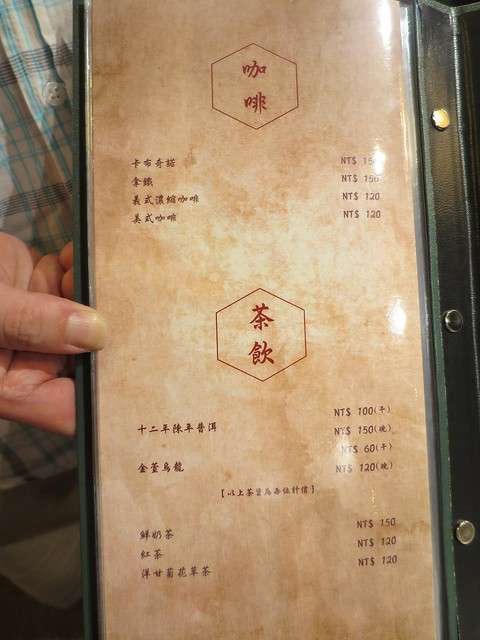 咖
啡
卡布奇諾 NT$ 150
拿鐵 NT$ 150
義式濃縮咖啡 NT$ 120
美式咖啡 NT$ 120
茶
飲
NT$ 100(平)
十二年陳年普洱 NT$ 150(晚)
NT$ 60(平)
金萱烏龍 NT$ 120(晚)
[以上茶資為每位計價]
鮮奶茶 NT$ 150
紅茶 NT$ 120
洋甘菊花草茶 NT$ 120